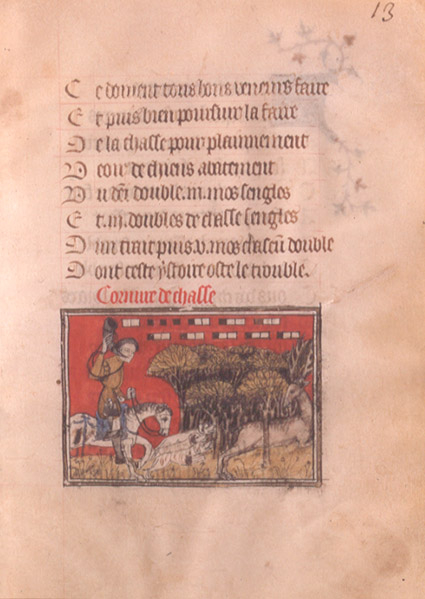 13
Ce doiuent tous bons veneurs faire
Et puis bien poursuir la faire
De la chasse pour plainnement
de chiens abatement
double .iii. mos sengles
Et .iii. doubles de chasse sengles
Dun trait puis .v. mos chascũ double
Dont ceste ystoire oste le trouble.
Cornure de chasse